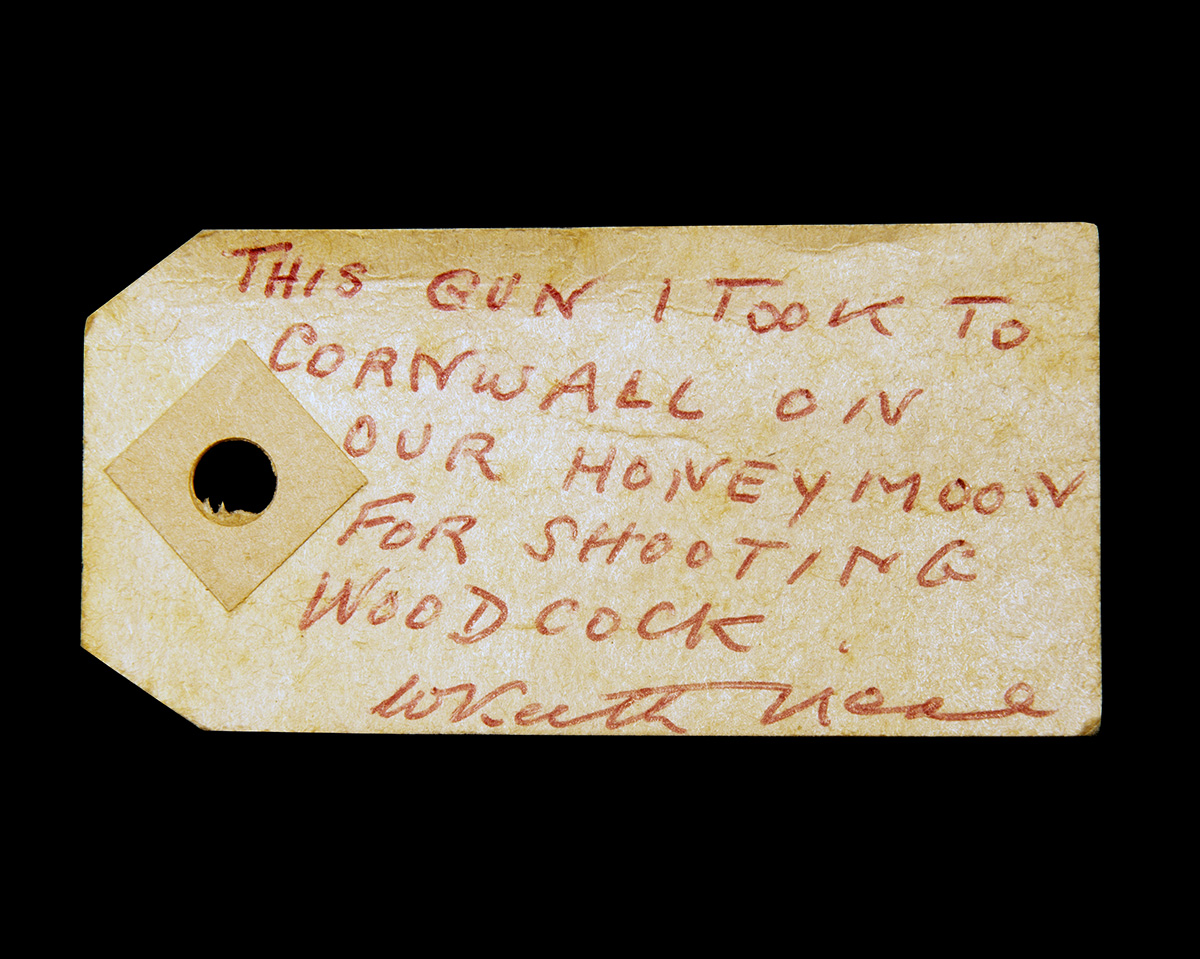 THIS GUN I TOOK TO
CORNWALL ON
OUR HONEYMOON
FOR SHOOTING
WOODCOCK.
W Keith Neal